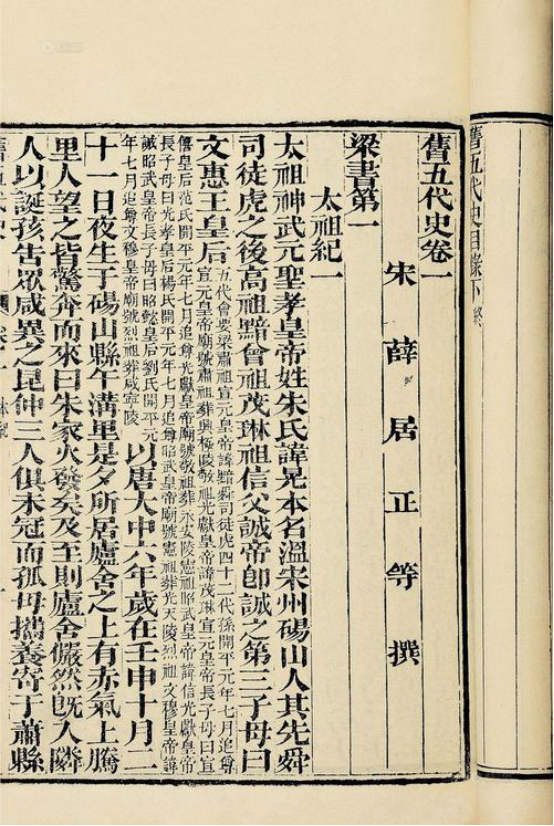 舊五代史目錄下 終
舊五代史卷一
宋薛居正等撰
梁書第一
太祖紀一
太祖神武元聖孝皇帝姓朱氏諱晃本名溫宋州碭山人其先舜
司徒虎之後高祖黯曾祖茂琳祖信父誠帝即誠之第三子母曰
文惠王皇后
五代會要梁肅祖宣元皇帝諱黯舜司徒虎四十二代孫開平元年七月追尊
宣元皇帝廟號肅祖葬興極陵敬祖光獻皇帝諱茂琳宣元皇帝長子母曰宣
僖皇后范氏開平元年七月追尊光獻皇帝廟號敬祖葬永安陵憲祖昭武皇帝諱信光獻皇帝
長子母曰光孝皇后楊氏開平元年七月追尊昭武皇帝廟號憲祖葬光天陵烈祖文穆皇帝諱
誠昭武皇帝長子母曰昭懿皇后劉氏開平元
年七月追尊文穆皇帝廟號烈祖葬咸寧陵
以唐大中六年歲在壬申十月二
十一日夜生于碭山縣午溝里是夕所居廬舍之上有赤氣上騰
里人望之皆驚奔而來曰朱家火發矣及至則廬舍儼然既入隣
人以誕孩告眾咸異之昆仲三人俱未冠而孤母攜養寄于蕭縣